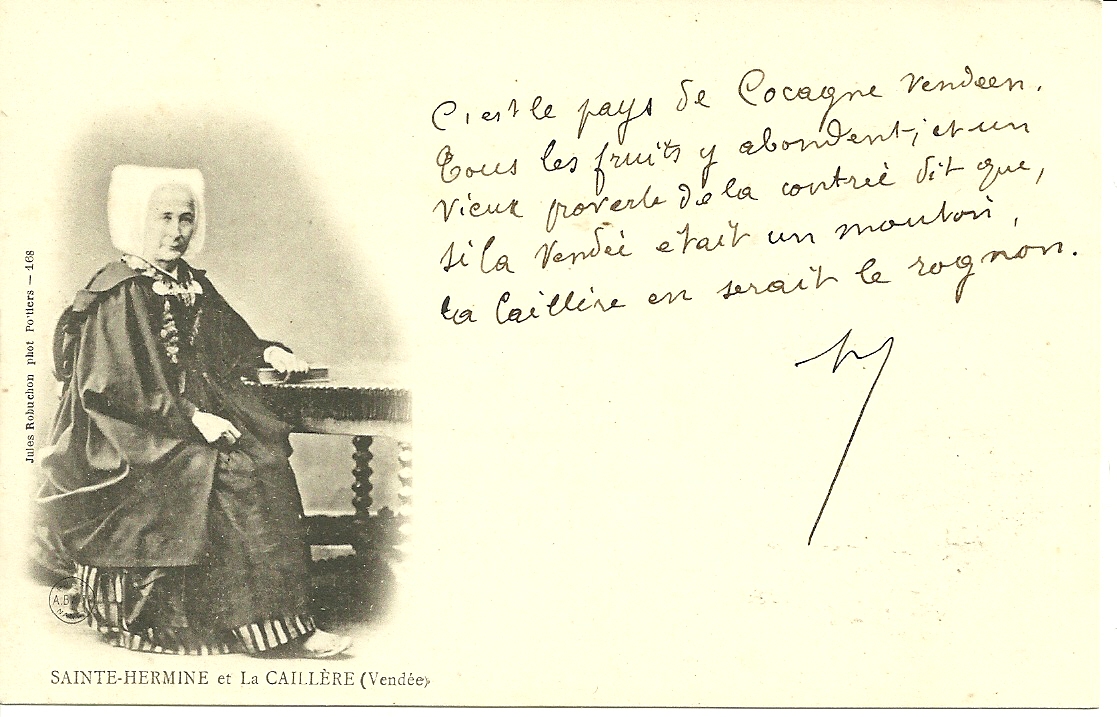 C'est le pays de Cocagne Vendéen.
Tous les fruits y abondent; et un
vieux proverbe de la contrée dit que,
si la Vendée etait un mouton,
la Caillère en serait le rognon.
Jules Robuchon phot Poitiers — 468
SAINTE-HERMINE et La CAILLÈRE (Vendée)